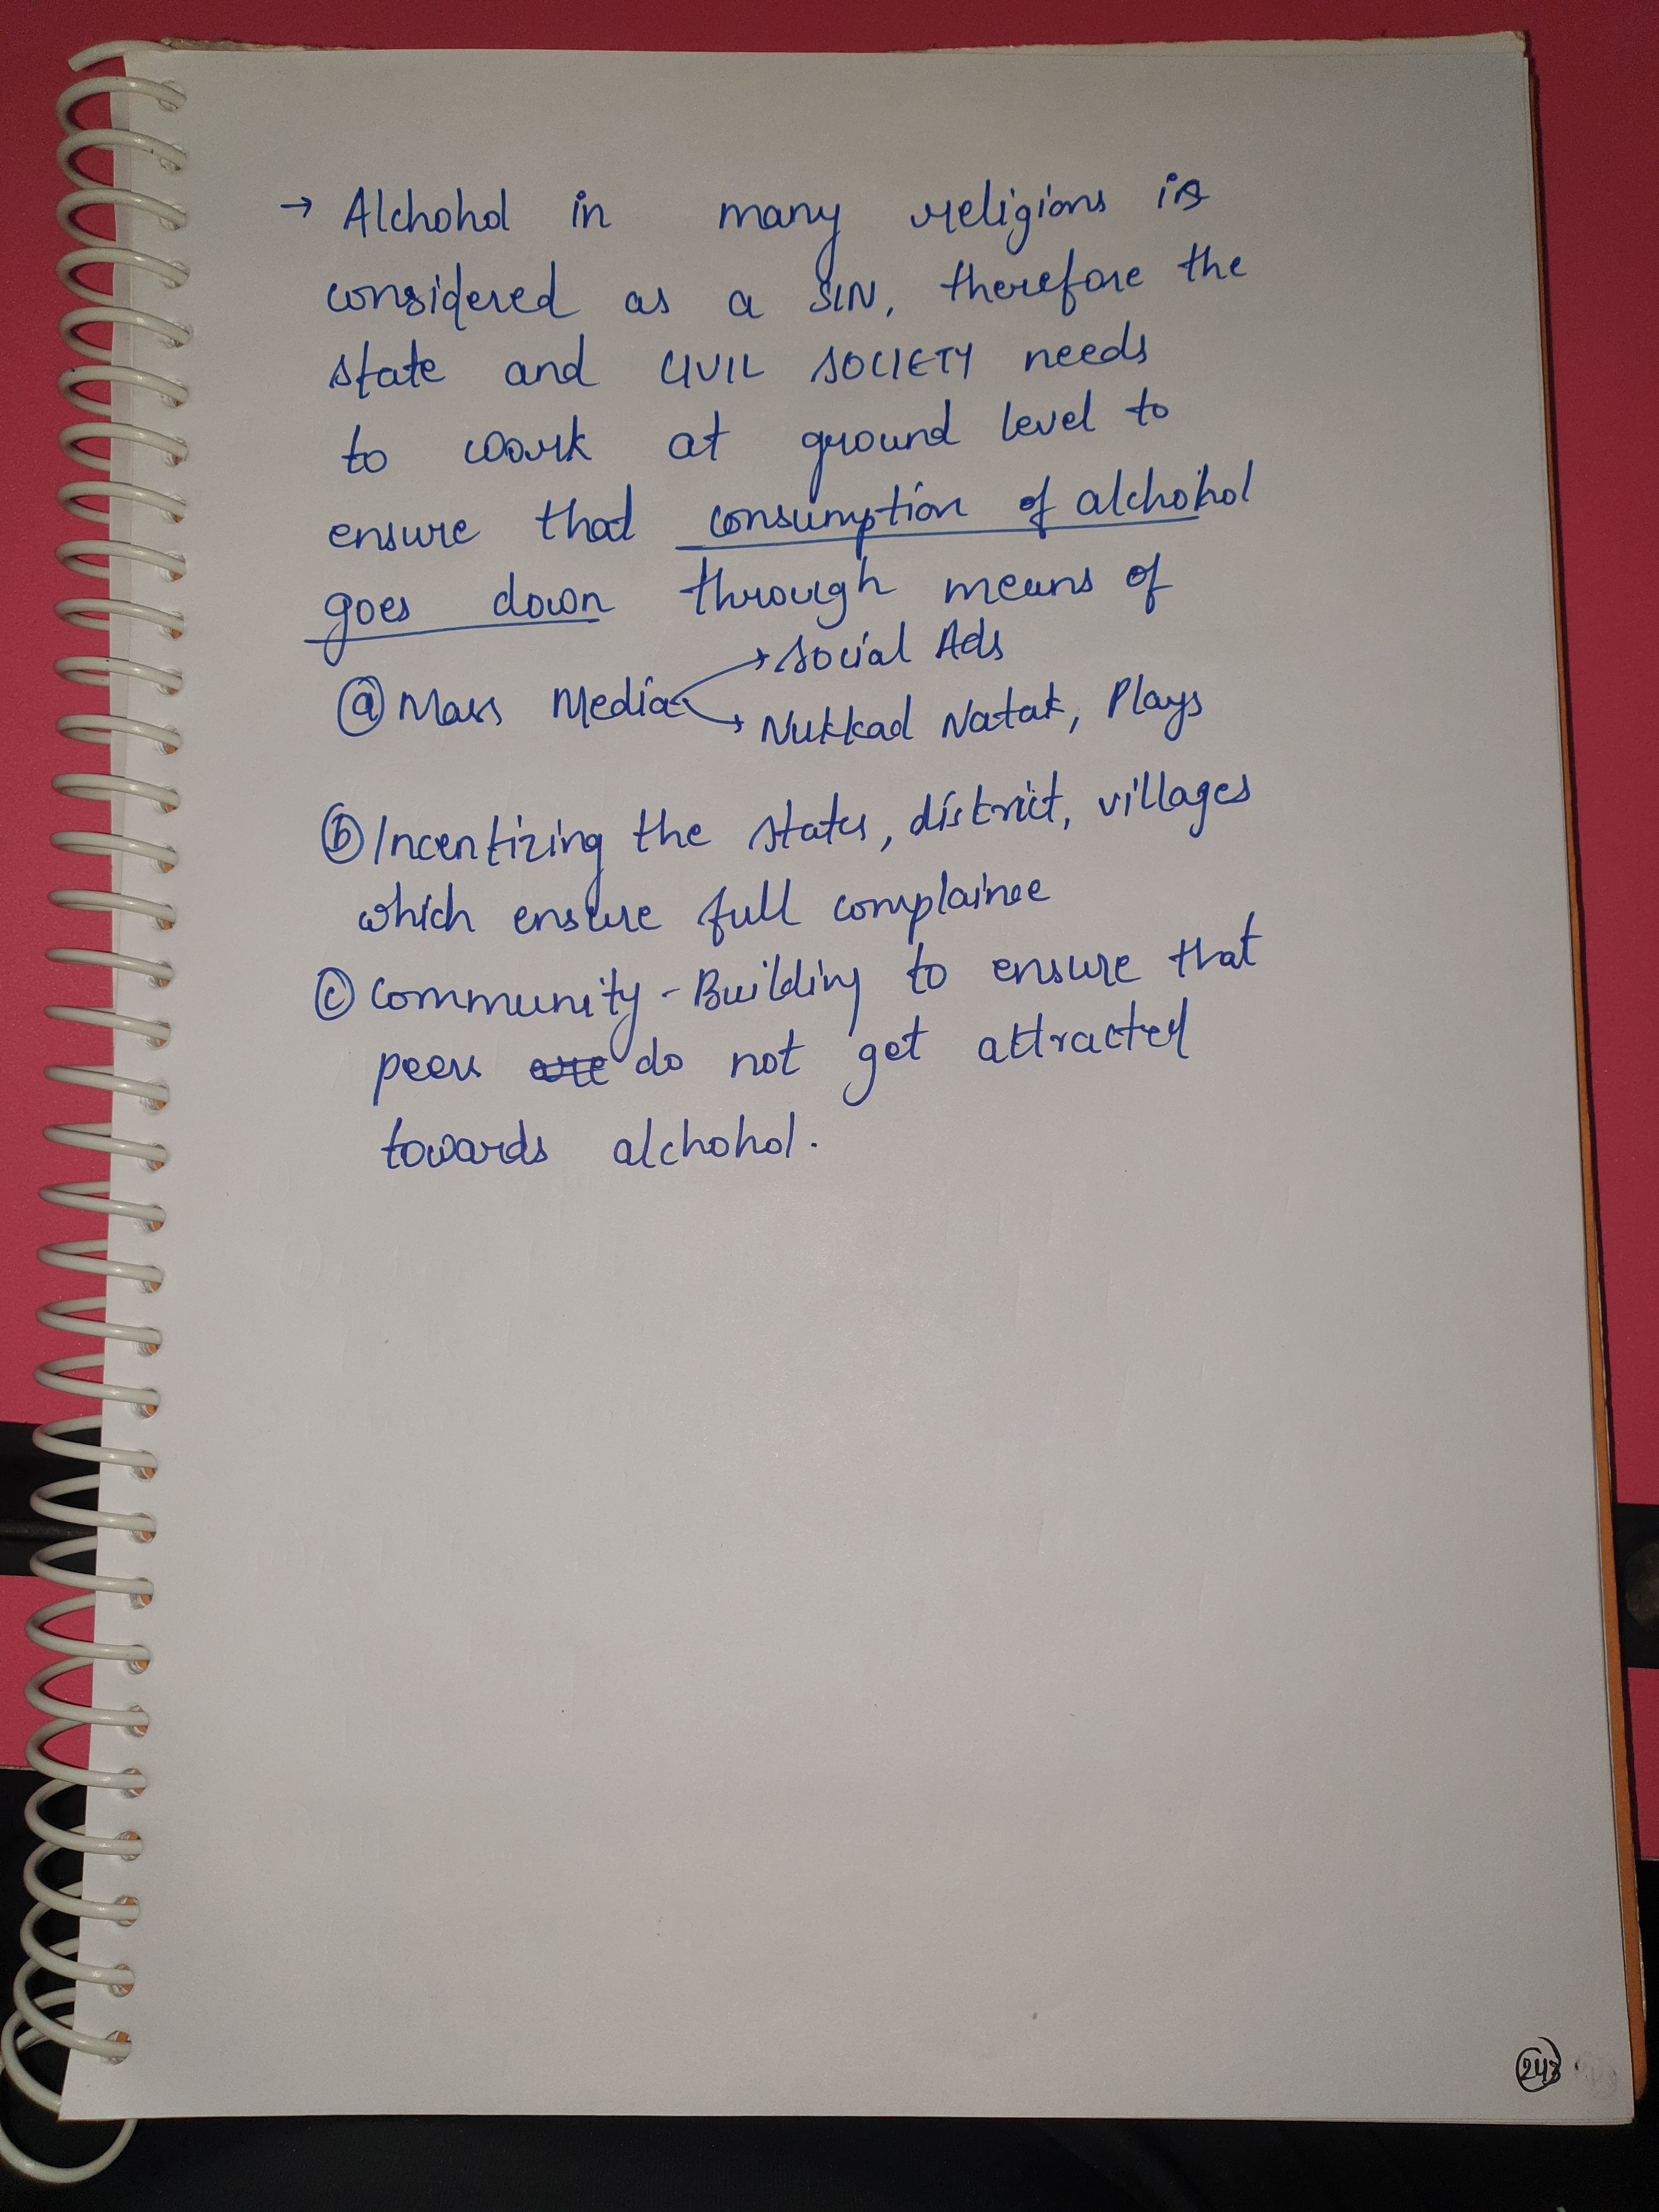 → Alchohol in many religions is
considered as a SIN, therefore the
state and CIVIL SOCIETY needs
to work at ground level to
ensure that consumption of alchohol
goes down through means of
→ Social Ads
ⓐ Mass Media
→ Nukkad Natak, Plays
ⓑ Incentizing the states, district, villages
which ensure full complaince
ⓒ Community-Building to ensure that
peers are do not get attracted
towards alchohol.